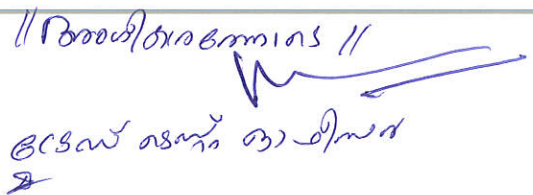 //അംഗീകാരത്തോടെ//
ട്രേഡ് ടെസ്റ്റ് ഓഫീസർ